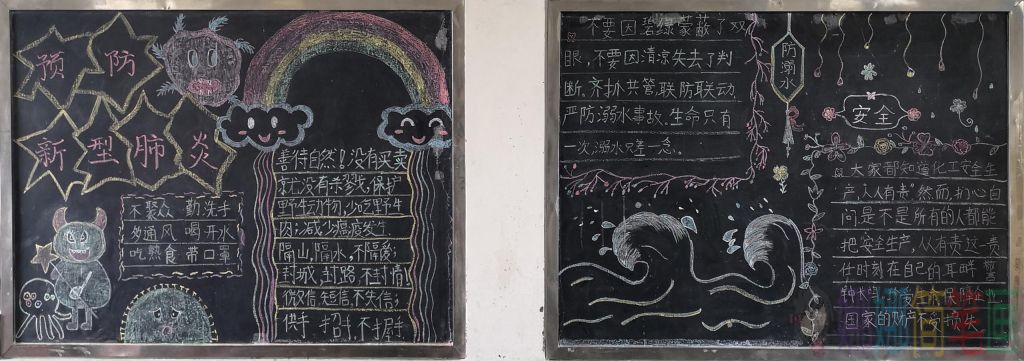 预防
新型肺炎
不聚众 勤洗手
多通风 喝开水
吃熟食 带口罩
善待自然！没有买卖
就没有杀戮，保护
野生动物，少吃野生
肉；减少瘟疫发生
隔山，隔水，不隔爱；
封城，封路，不封情！
微信，短信，不失信；
拱手，招手，不握手
不要因碧绿蒙蔽了双
眼，不要因清凉失去了判
断。齐抓共管，联防联动，
严防溺水事故，生命只有
一次，溺水只差一念。
防溺水
安全
大家都知道化工安全生
产，“人人有责”然而扪心自
问是不是所有的人都能
把安全生产，人人有责这一责
任时刻在自己的耳畔警
钟长
国家的财产不受损失